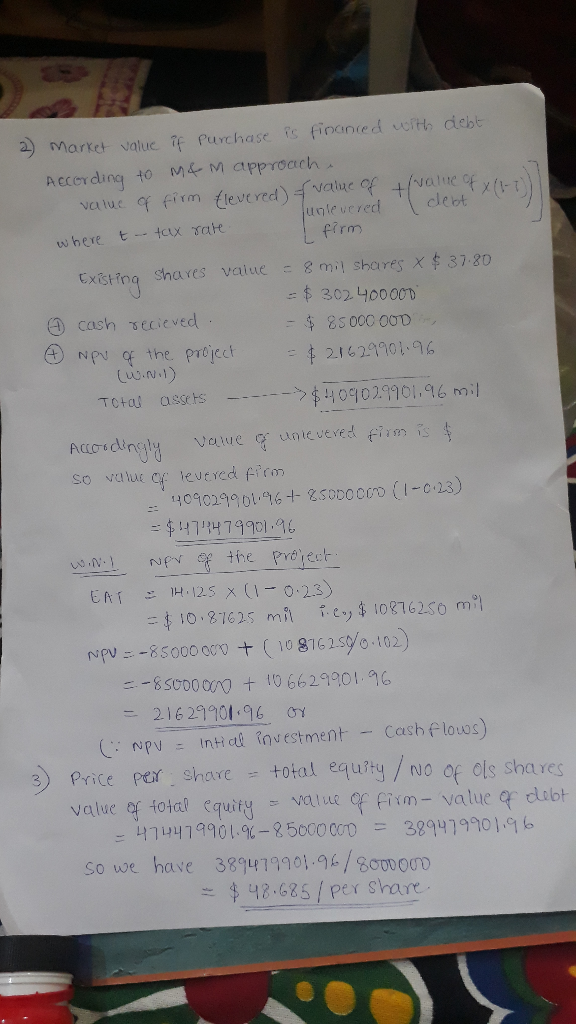 2) Market value if Purchase is financed with debt
According to M&M approach,
value of firm (levered) = [value of unlevered firm + (value of debt x (1-t))]
where t - tax rate
Existing shares value = 8 mil shares x $ 37.80
= $ 302400000
(+) cash recieved = $ 85000000
(+) NPV of the project = $ 21629901.96
(W.N.1)
Total assets -----> $409029901.96 mil
Accordingly value of unlevered firm is $
so value of levered firm
= 409029901.96 + 85000000 (1-0.23)
= $474479901.96
W.N.1 NPV of the project.
EAT = 14.125 x (1-0.23)
= $ 10.87625 mil i.e., $ 10876250 mil
NPV = -85000000 + (10876250/0.102)
= -85000000 + 106629901.96
= 21629901.96 or
(∵ NPV = Intial investment - cash flows)
3) Price per share = total equity / No of o/s shares
value of total equity = value of firm - value of debt
= 474479901.96 - 85000000 = 389479901.96
so we have 389479901.96/8000000
= $ 48.685 / per share.